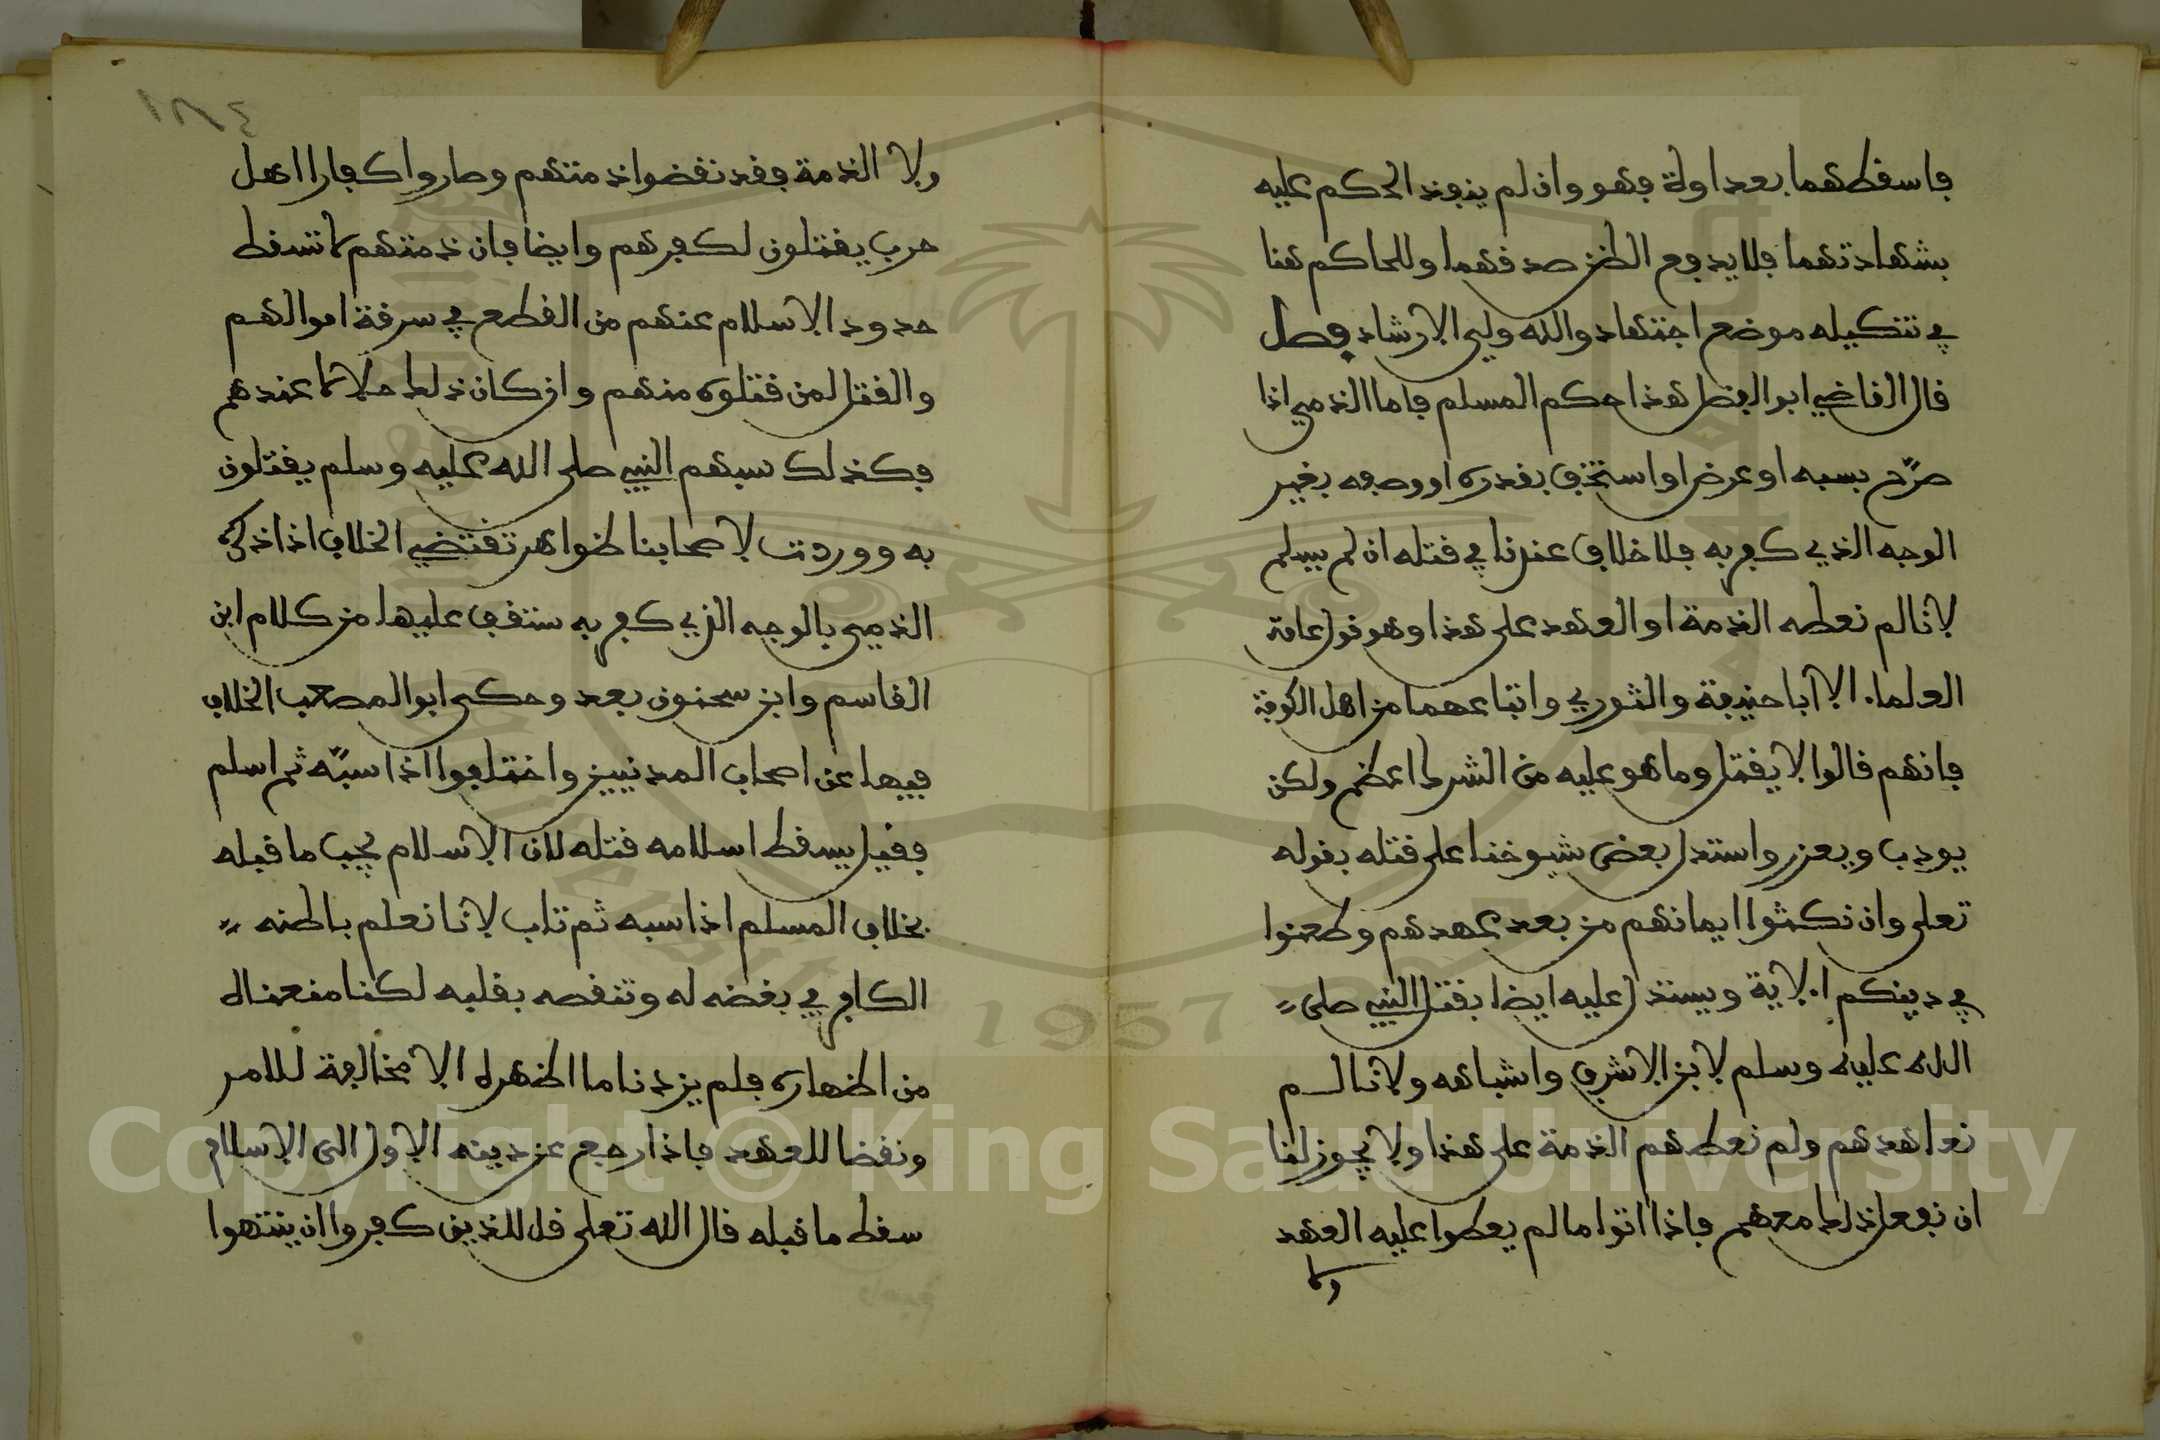 فاسقطهما بعداوة فهو وان لم ينفذ الحكم عليه
بشهادتهما فلا يدفع الظن صدقهما وللحاكم هنا
في تنكيله موضع اجتهاد والله ولي الارشاد فصل
قال القاضي ابو الفضل هذا حكم المسلم فاما الذمي اذا
صرّح بسبه او عرض او استخف بقدره او وصفه بغير
الوجه الذي كفر به فلا خلاف عندنا في قتله ان لم يسلم
لانا لم نعطه الذمة او العهد على هذا وهو قول عامة
العلماء الا أبا حنيفة والثوري واتباعهما من اهل الكوفة
فانهم قالوا لا يقتل وما هو عليه من الشرك اعظم ولكن
يودب ويعزر واستدل بعض شيوخنا على قتله بقوله
تعلى وان نكثوا ايمانهم من بعد عهدهم وطعنوا
في دينكم الاية ويستدل عليه ايضا بقتل النبي صلى
الله عليه وسلم لابن الاشرف واشباهه ولانا لم
نعاهدهم ولم نعطهم الذمة على هذا ولا يجوز لنا
ان نفعل ذلك معهم فاذا اتوا ما لم يعطوا عليه العهد
ولا
١٨٤
ولا الذمة فقد نقضوا ذمتهم وصاروا كفارا اهل
حرب يقتلون لكفرهم وايضا فان ذمتهم لا تسقط
حدود الاسلام عنهم من القطع في سرقة اموالهم
والقتل لمن قتلوه منهم وان كان ذلك حلالا عندهم
فكذلك سبهم النبي صلى الله عليه وسلم يقتلون
به ووردت لاصحابنا ظواهر تقتضي الخلاف اذا ذكره
الذمي بالوجه الذي كفر به ستقف عليها من كلام ابن
القاسم وابن سحنون بعد وحكى ابو المصعب الخلاف
فيها عن اصحاب المدنيين واختلفوا اذا سبّه ثم اسلم
فقيل يسقط اسلامه قتله لان الاسلام يجب ما قبله
بخلاف المسلم اذا سبه ثم تاب لانا نعلم باطنه
الكافر في بغضه له وتنقصه بقلبه لكنا منعناه
من اظهاره فلم يزدنا ما اظهره الا مخالفة للامر
ونقضا للعهد فاذا رجع عن دينه الاول الى الاسلام
سقط ما قبله قال الله تعلى قل للذين كفروا ان ينتهوا
Copyright © King Saud University
1957